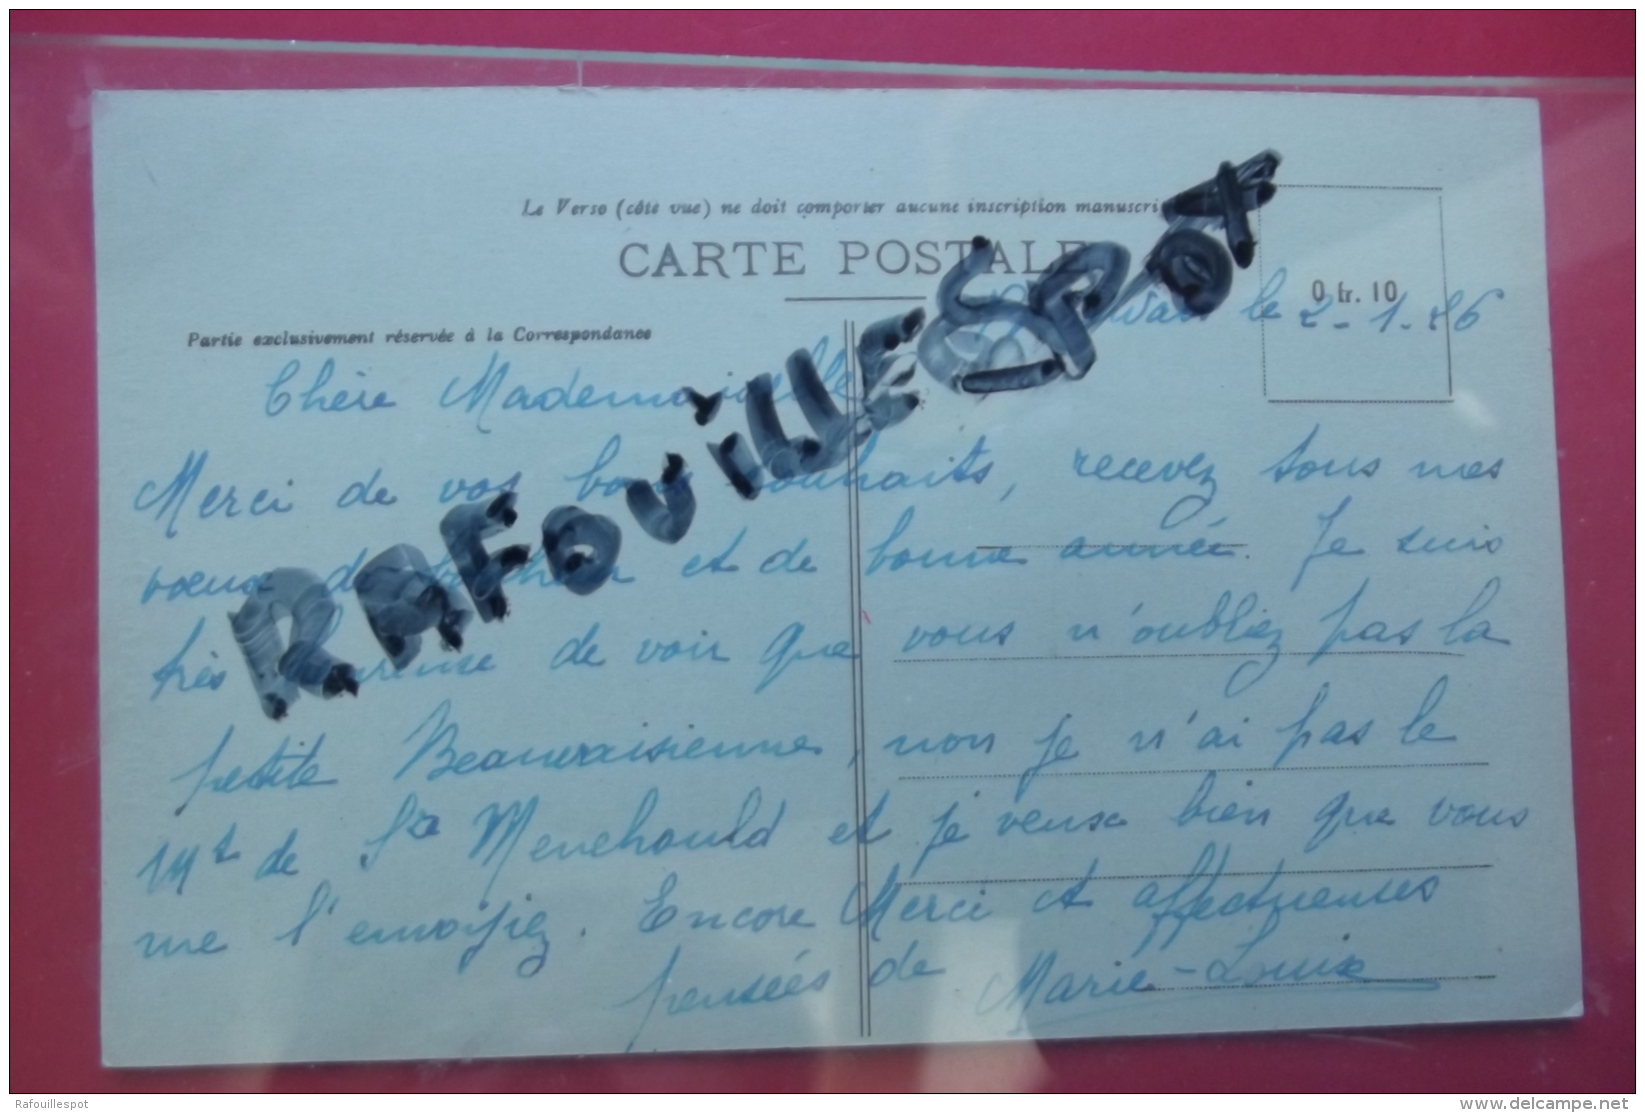 Le Verso (côté vue) ne doit comporter aucune inscription
CARTE POSTALE
0 fr. 10
le 2-1-26
Partie exclusivement réservée à la Correspondance
RAFOUILLESPOT
Chère Mademoiselle
Merci de vos bons souhaits, recevez tous mes
vœux de bonheur et de bonne année. Je suis
très heureuse de voir que vous n'oubliez pas la
petite Beauvaisienne, non je n'ai pas le
Mt de Ste Menehould et je veux bien que vous
me l'envoyiez. Encore Merci et affectueuses
pensées de Marie-Louise
Rafouillespot
delcampe.net